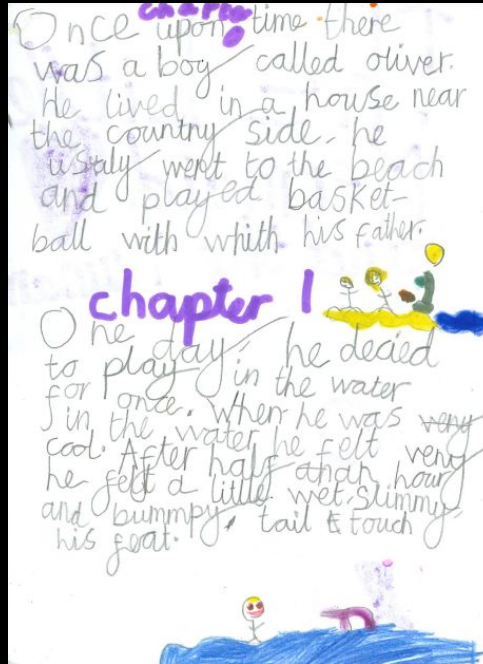 chapter
Once upon time there
was a boy called oliver.
He lived in a house near
the country side. he
usualy went to the beach
and played basket-
ball with whith his father.
chapter 1
One day, he decied
to play in the water
for once. When he was very
in the water he felt very
cool. After half ahan hour
he felt a little wet, slimmy
and bummpy, tail t touch
his feat.